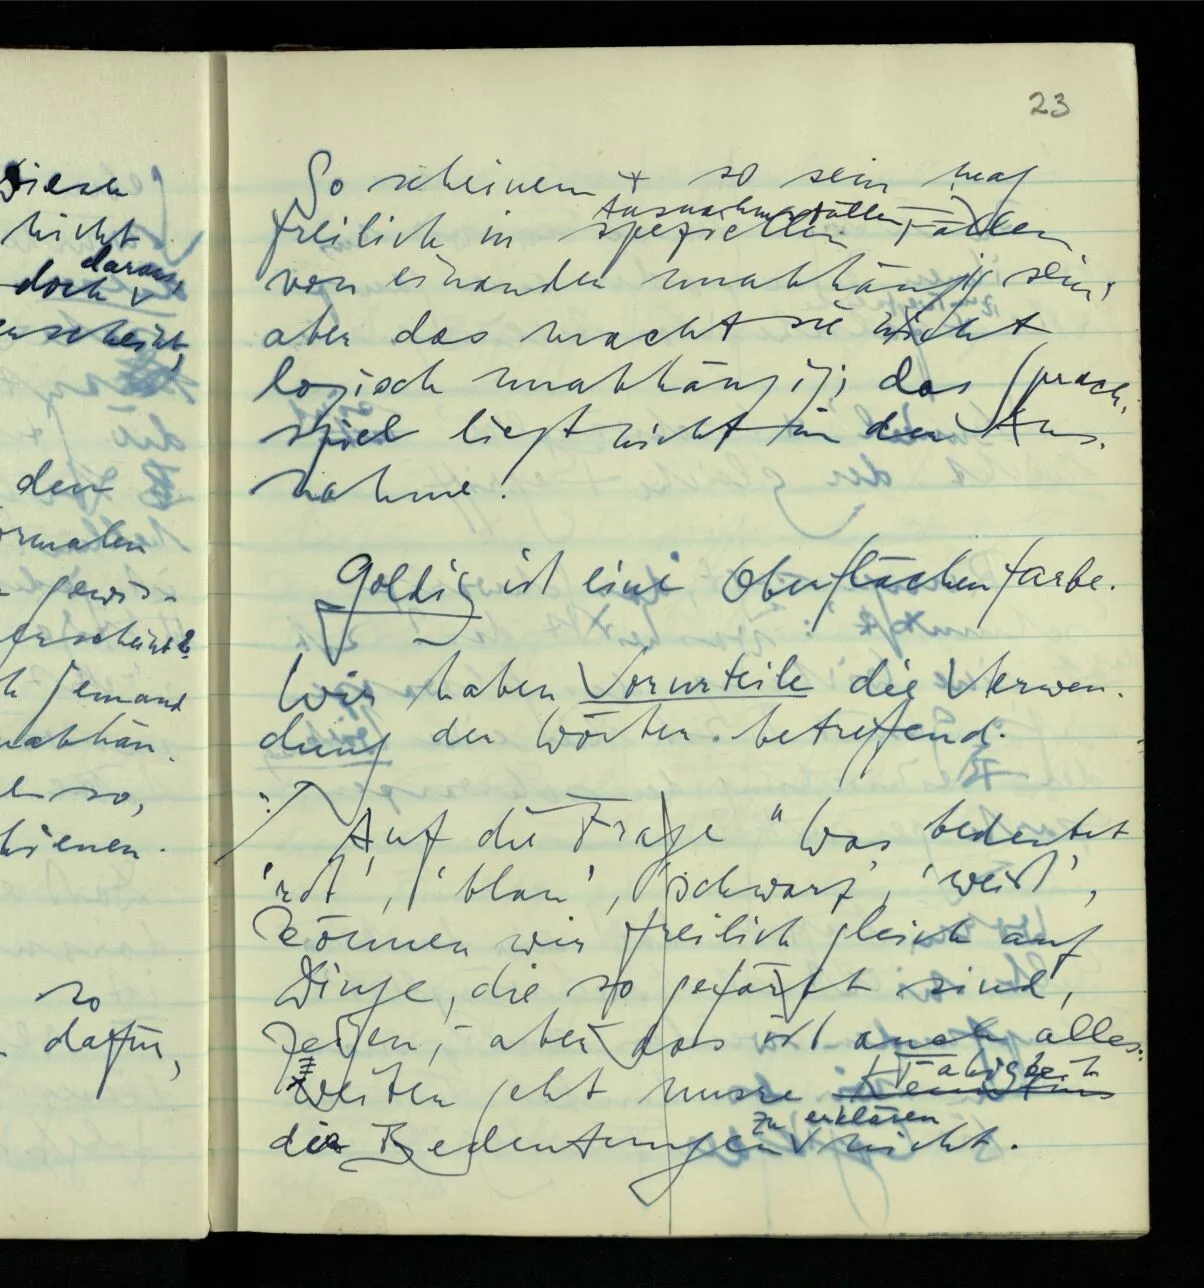 Diesen
nicht
daraus
doch v
erscheint,
den
ormalen
gewis-
erscheint?
h jemand
nabhän
so,
hienen.
so
dafür,
23
So scheinen + so sein mag
Ausnahmefällen
freilich in speziellen Fällen
von einander unabhängig sein,
aber das macht sie nicht
logisch unabhängig; das Sprach-
spiel liegt nicht in der Aus-
nahme.
Goldig ist eine Oberflächenfarbe.
Wir haben Vorurteile die Verwen-
dung der Wörter betreffend.
Auf die Frage "Was bedeutet
'rot', 'blau', 'schwarz', 'weiß',
können wir freilich gleich auf
Dinge, die so gefärbt sind,
zeigen, – aber das ist auch alles:
Fähigkeit
Weiter geht unsre
zu erklären
die Bedeutungen v nicht.